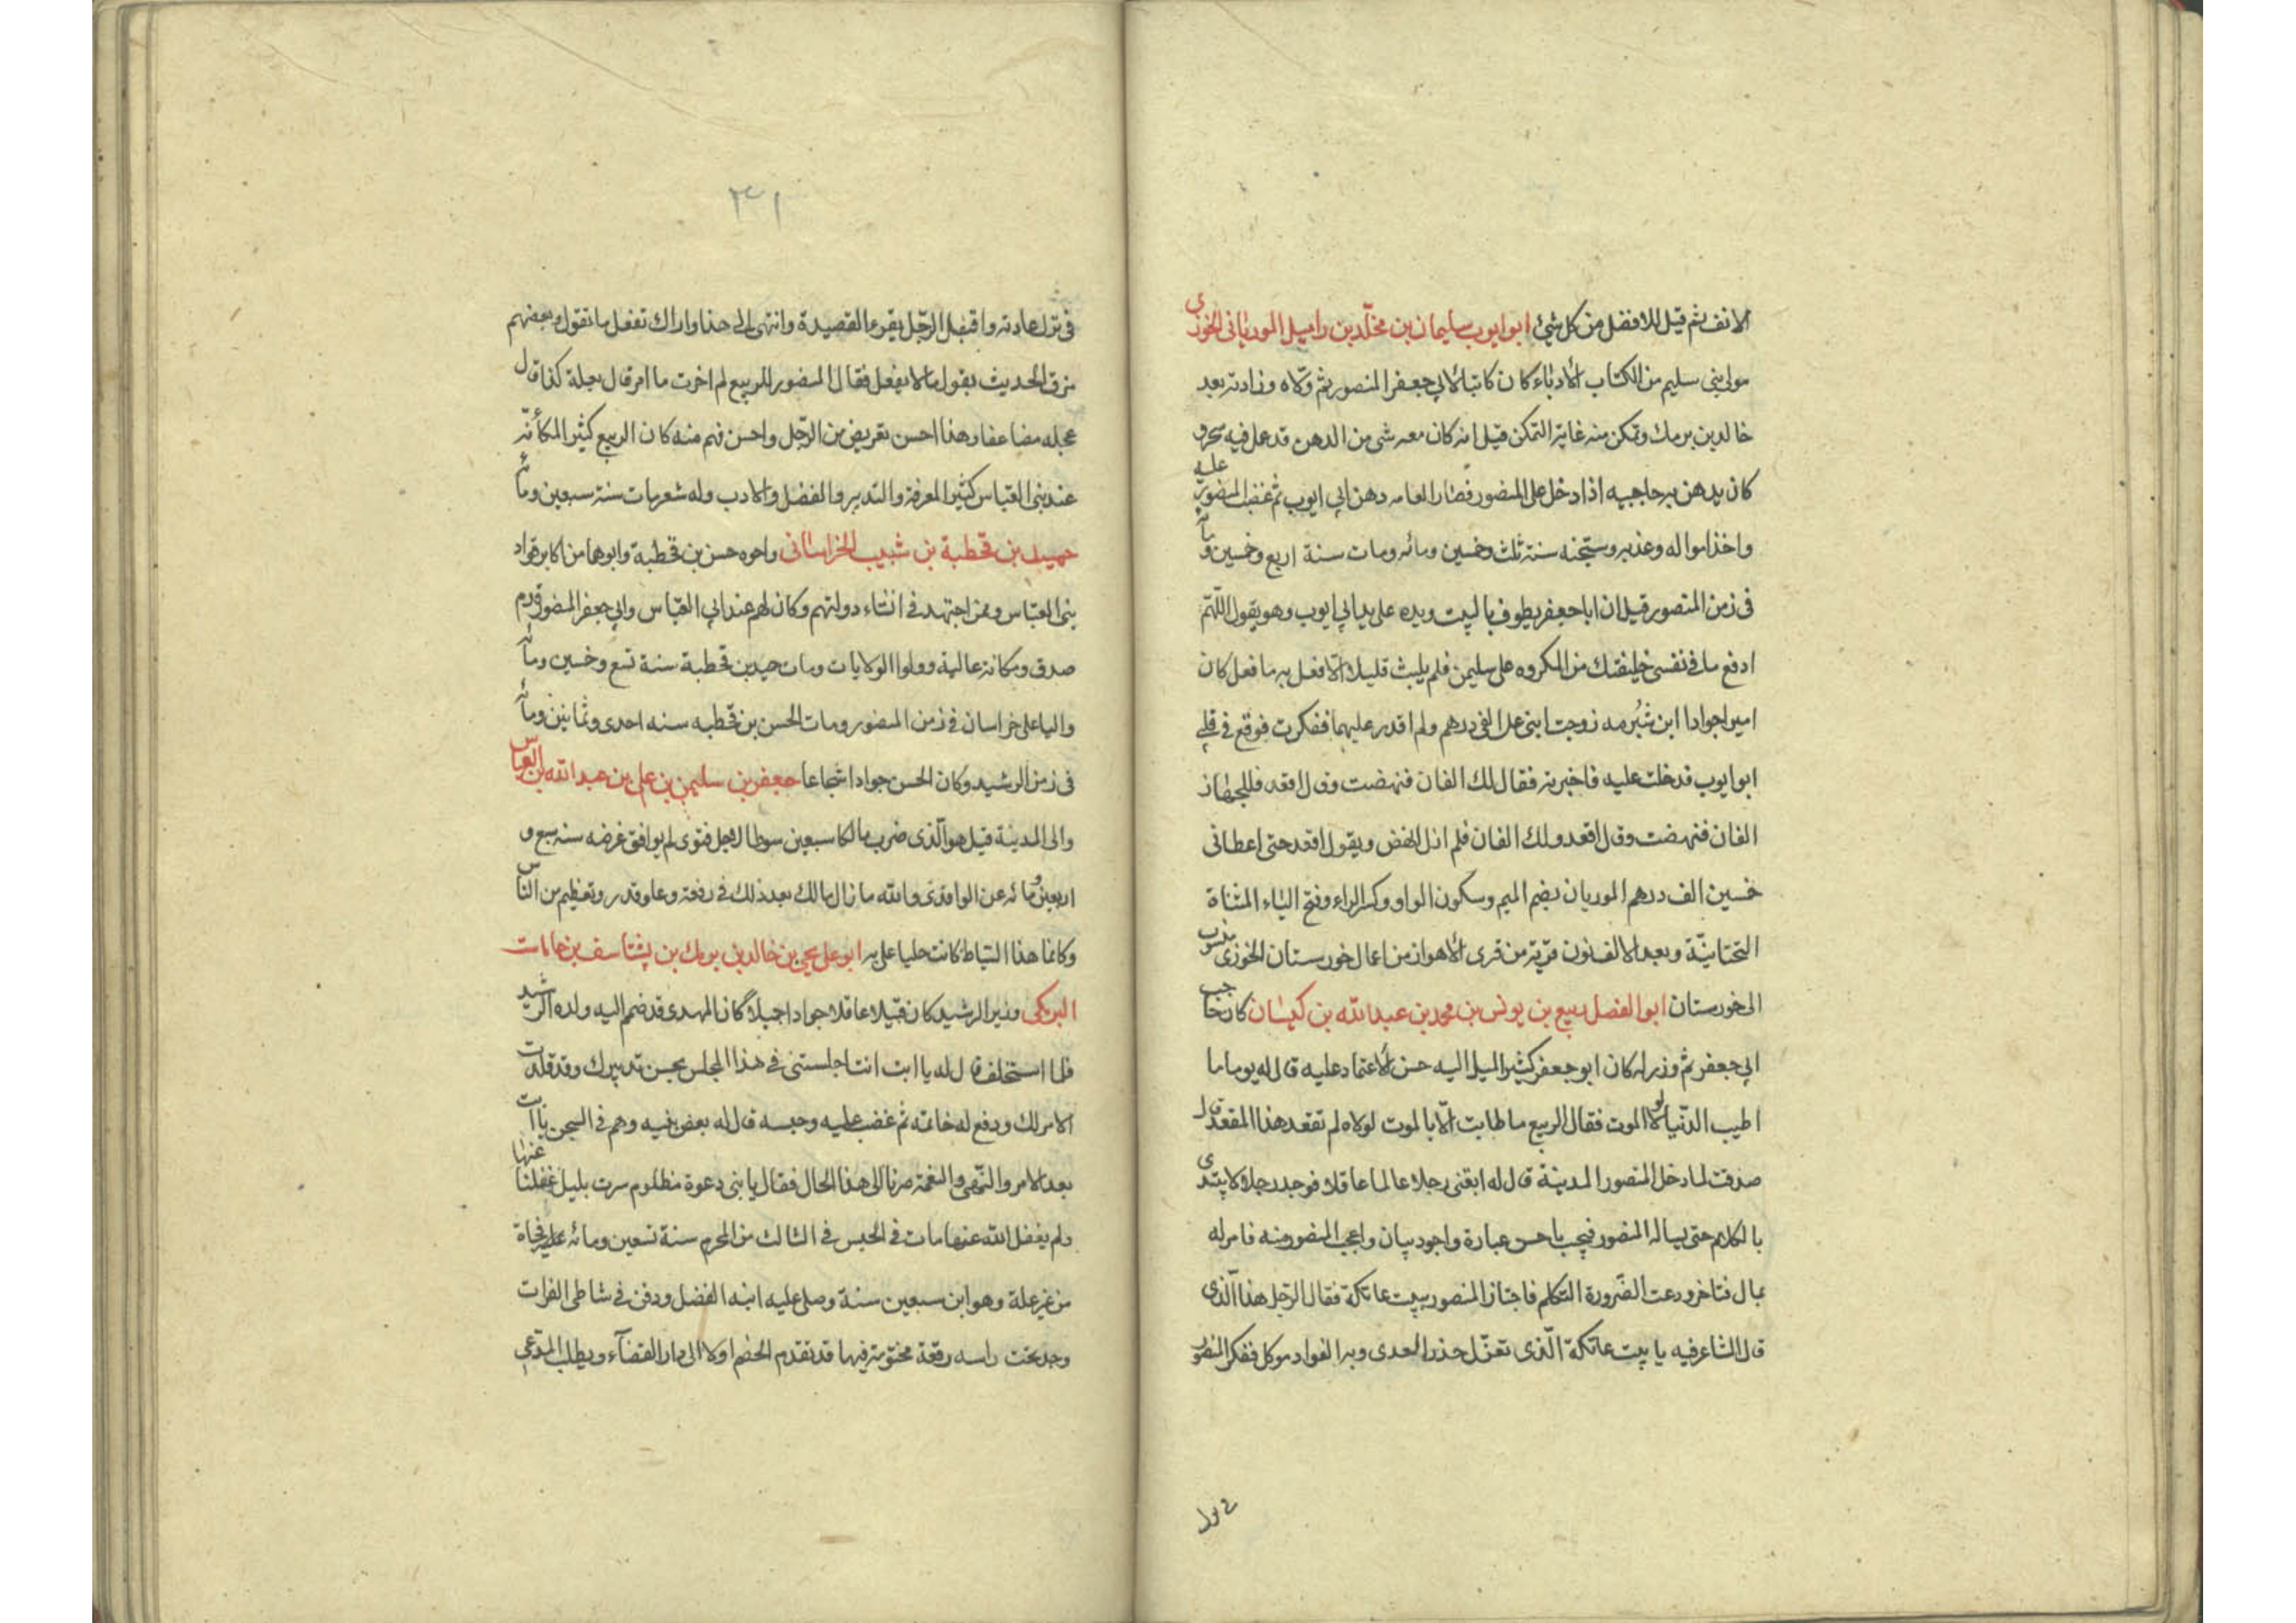 الانف ثم قيل للافضل من كل شئ ابو ايوب سليمان بن مخلّد بن راميل المورياني الخوزي
مولى بني سليم من الكتاب الأدباء كان كاتبا لابي جعفر المنصور ثم ولّاه وزارته بعد
خالد بن برمك وتمكن منه غاية التمكن قيل انه كان معه شي من الدهن قد عمل فيه سحر و
كان يدهن به حاجبيه اذا دخل على المنصور فصار العامه دهن ابي ايوب ثم غضب المنصور عليه
واخذ امواله وعذبه وسجنه سنة ثلث وخمسين ومائه ومات سنة اربع وخمسين ومأئه
في زمن المنصور قيل ان ابا جعفر يطوف بالبيت ويده على يد ابي ايوب وهو يقول اللّهمّ
ادفع ما في نفسي خليفتك من المكروه على سليمن فلم يلبث قليلا الّا فعل به ما فعل كان
اميرا جوادا ابن شبرمه زوجت ابني على الفي درهم ولم اقدر عليهما ففكرت فوقع في قلبي
ابو ايوب فدخلت عليه فاخبرته فقال لك الفان فنهضت وقال اقعد فللجهاز
الفان فنهضت وقال اقعد ولك الفان فلم ازل انهض ويقول اقعد حتى اعطاني
خمسين الف درهم الموريان بضم الميم وسكون الواو وكسر الراء وفتح الياء المثناة
التحتانيّة وبعد الالف نون قرية من قرى الأهواز من اعمال خورستان الخوزي منسوب
الى خورستان ابو الفضل ربيع بن يونس بن محمد بن عبد الله بن كيسان كان حاجب
ابي جعفر ثم وزر له كان ابو جعفر كثير الميل اليه حسن الأعتماد عليه قال له يوما ما
اطيب الدّنيا لو لا الموت فقال الربيع ما طابت الّا بالموت لولاه لم تقعد هذا المقعد قال
صدقت لما دخل المنصور المدينة قال له ابغني رجلا عالما عاقلا فوجد رجلا لا يبتدي
بالكلام حتى يساله المنصور فيجب باحسن عبارة واجود بيان واعجب المنصور منه فامر له
بمال فتاخر ودعت الضّرورة التكلم فاجتاز المنصور ببيت عاتكة فقال الرّجل هذا الّذي
قال الشاعر فيه يا بيت عاتكة الّذي تعزّل حذر العدى وبه الفواد موكل ففكر المنصور
في ترك عادته واقبل الرّجل يقرء القصيدة وانتهى الى هذا واراك تفعل ما تقول وبعضهم
مزق الحديث يقول ما لا يفعل فقال المنصور للربيع لم اخرت ما امر قال بعلة كذا قال
عجله مضاعفا وهذا احسن تعريض من الرّجل واحسن فهم منه كان الربيع كثير المكأنة
عند بني العبّاس كثير المعرفة والتدبير والفضل والادب وله شعر مات سنة سبعين ومأئه
حميد بن قحطبة بن شبيب الخراساني واخوه حسن بن قحطبة وابوهما من اكابر قواد
بني العبّاس وممن اجتهد في انشاء دولتهم وكان لهم عند ابي العبّاس وابي جعفر المنصور قدم
صدق ومكانة عالية وولوا الولايات ومات حميد بن قحطبة سنة تسع وخمسين ومأئه
واليا على خراسان في زمن المنصور ومات الحسن بن قحطبه سنه احدى وثمانين ومأئه
في زمن الرشيد وكان الحسن جوادا شجاعا جعفر بن سليمن بن علي بن عبد الله بن العباس
والى المدينة قيل هو الّذي ضرب مالكا سبعين سوطا لاجل فتوى لم يوافق غرضه سنه سبع و
اربعين ومائه عن الواقدي والله ما زال مالك بعد ذلك في رفعة وعلو قدر وتعظيم من الناس
وكانما هذا السّياط كانت حليا على به ابو علي يحيى بن خالد بن برمك بن يشتاسف بن جاماست
البرمكي وزير الرشيد كان نبيلا عاقلا جوادا جبلا كان المهدى قد ضم اليه ولده الرشيد
فلما استخلف قال له يا ابت انت اجلستني في هذا المجلس بحسن تدبيرك وقد قلدت
الامر لك ودفع له خاتمه ثم غضب عليه وحبسه قال له بعض بنيه وهم في السجن يا ابت
بعد الامر والنّهي والنعمة صرنا الى هذا الحال فقال يا بني دعوة مظلوم سرت بليل غفلنا عنها
ولم يغفل الله عنها مات في الحبس في الثالث من المحرم سنة تسعين ومائه على فجاة
من غير علة وهو ابن سبعين سنة وصلى عليه ابنه الفضل ودفن في شاطى الفرات
وجد تحت راسه رقعة مختومة فيها قد تقدم الخصم اولا الى دار القضآء ويطلب المدّعي
في ترك
٣١